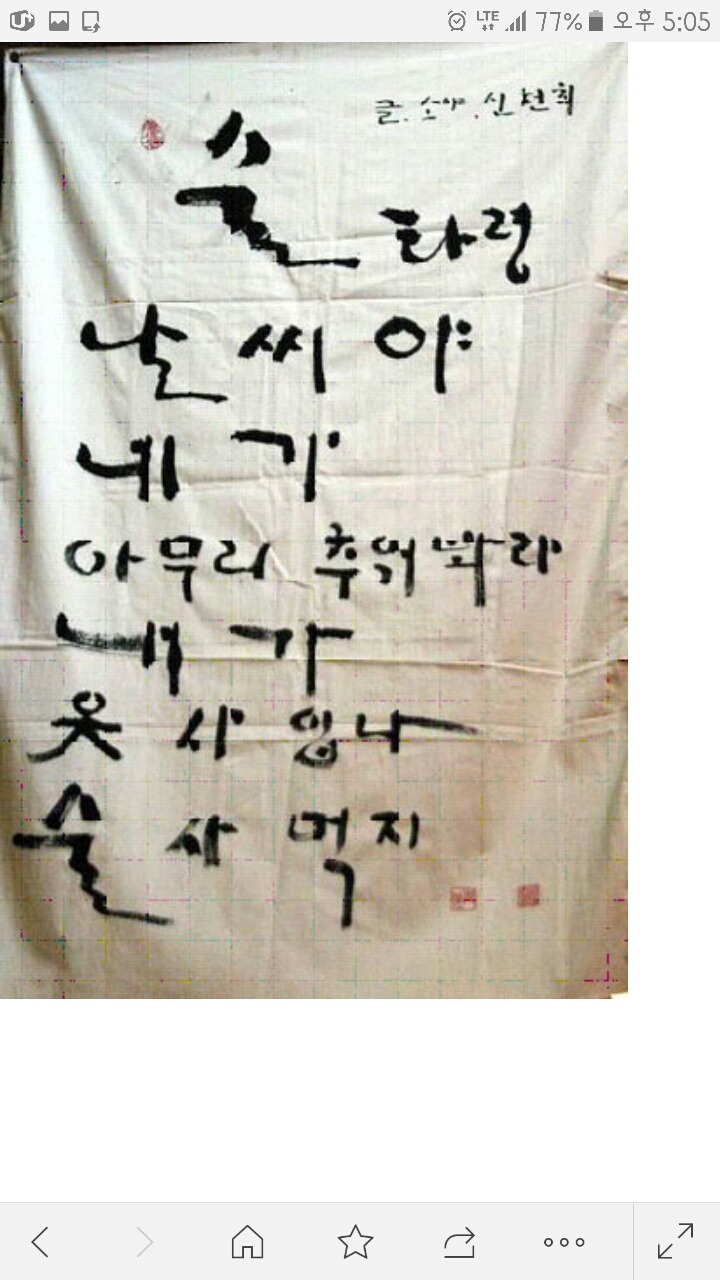 LTE 77% 오후 5:05
글. 소야. 신천희
술 타령
날씨야
네가
아무리 추워봐라
내가
옷 사 입나
술 사 먹지